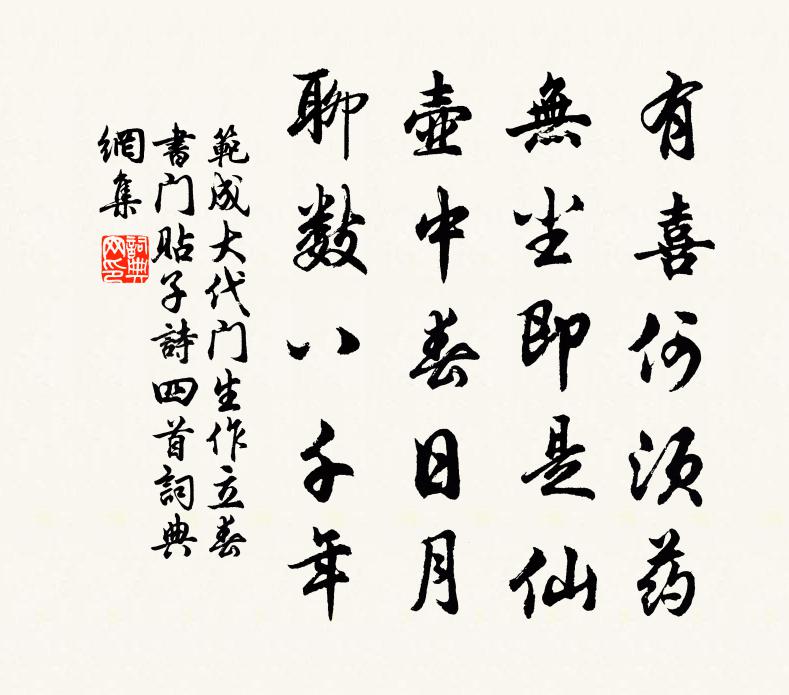 有喜何须药
無尘即是仙
壺中春日月
聊数八千年
範成大代门生作立春
書门貼子詩四首詞典
網集
詞典
网印